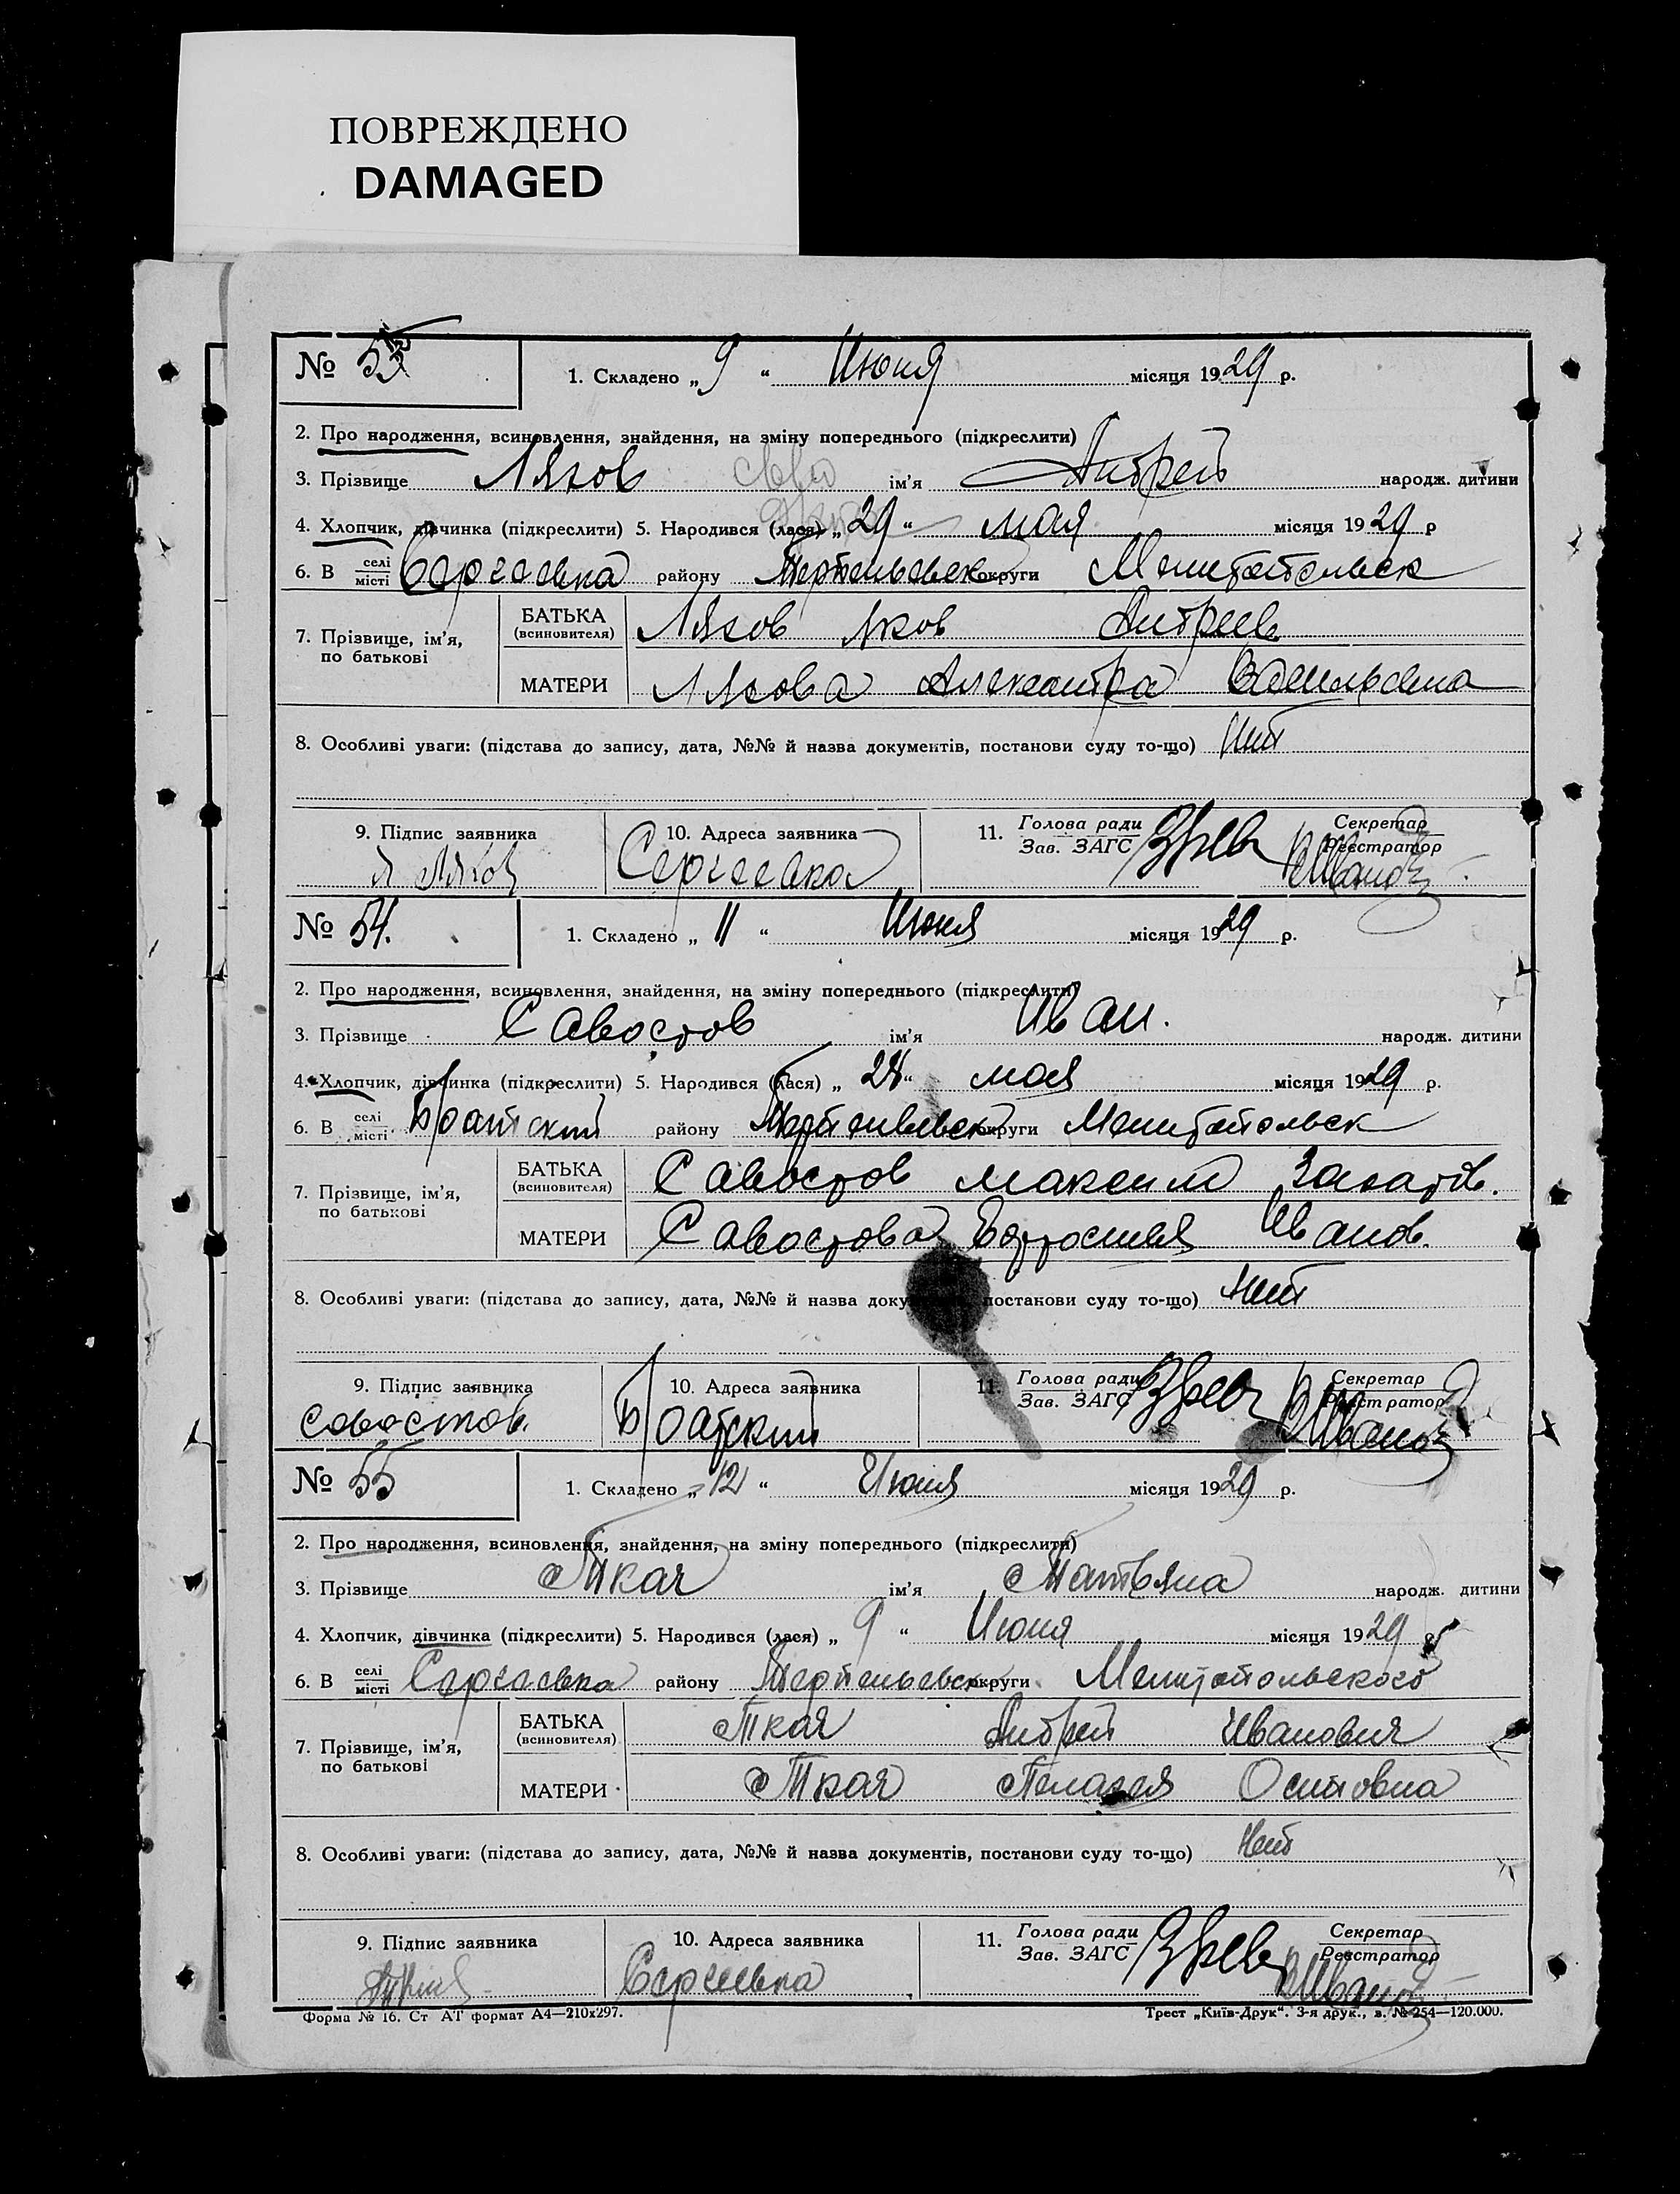 ПОВРЕЖДЕНО
DAMAGED
№ 53 1. Складено „ 9 “ Июня місяця 1929 р.
2. Про народження, всиновлення, знайдення, на зміну попереднього (підкреслити)
3. Прізвище Ляхов ім’я Андрей народж. дитини
4. Хлопчик, дівчинка (підкреслити) 5. Народився (лася) „ 29 “ мая місяця 1929 р
6. В селі/місті Сергеевка району округи Мелитопольск
7. Прізвище, ім’я, по батькові
БАТЬКА (всиновителя) Ляхов Яков Андреев
МАТЕРИ Ляхова Александра
8. Особливі уваги: (підстава до запису, дата, №№ й назва документів, постанови суду то-що) Нет
9. Підпис заявника 10. Адреса заявника 11. Голова ради / Зав. ЗАГС Секретар / Реєстратор
Я Ляхов Сергеевка
№ 54. 1. Складено „ 11 “ Июня місяця 1929 р.
2. Про народження, всиновлення, знайдення, на зміну попереднього (підкреслити)
3. Прізвище Савостов ім’я Иван. народж. дитини
4. Хлопчик, дівчинка (підкреслити) 5. Народився (лася) „ “ мая місяця 1929 р.
6. В селі/місті Братский району округи Мелитопольск
7. Прізвище, ім’я, по батькові
БАТЬКА (всиновителя) Савостов Максим
МАТЕРИ Савостова Иванов.
8. Особливі уваги: (підстава до запису, дата, №№ й назва доку постанови суду то-що) Нет
9. Підпис заявника 10. Адреса заявника 11. Голова ради / Зав. ЗАГС Секретар / Реєстратор
Савостов. Братский Иванов
№ 55 1. Складено „ 12 “ Июня місяця 1929 р.
2. Про народження, всиновлення, знайдення, на зміну попереднього (підкреслити)
3. Прізвище Ткач ім’я Татьяна народж. дитини
4. Хлопчик, дівчинка (підкреслити) 5. Народився (лася) „ 9 “ Июня місяця 1929 р.
6. В селі/місті Сергеевка району округи Мелитопольского
7. Прізвище, ім’я, по батькові
БАТЬКА (всиновителя) Ткач Андрей Иванович
МАТЕРИ Ткач Пелагея Осиповна
8. Особливі уваги: (підстава до запису, дата, №№ й назва документів, постанови суду то-що) Нет
9. Підпис заявника 10. Адреса заявника 11. Голова ради / Зав. ЗАГС Секретар / Реєстратор
Сергеевка
Форма № 16. Ст АТ формат А4—210х297. Трест „Київ-Друк“. 3-я друк., в. № 254—120.000.